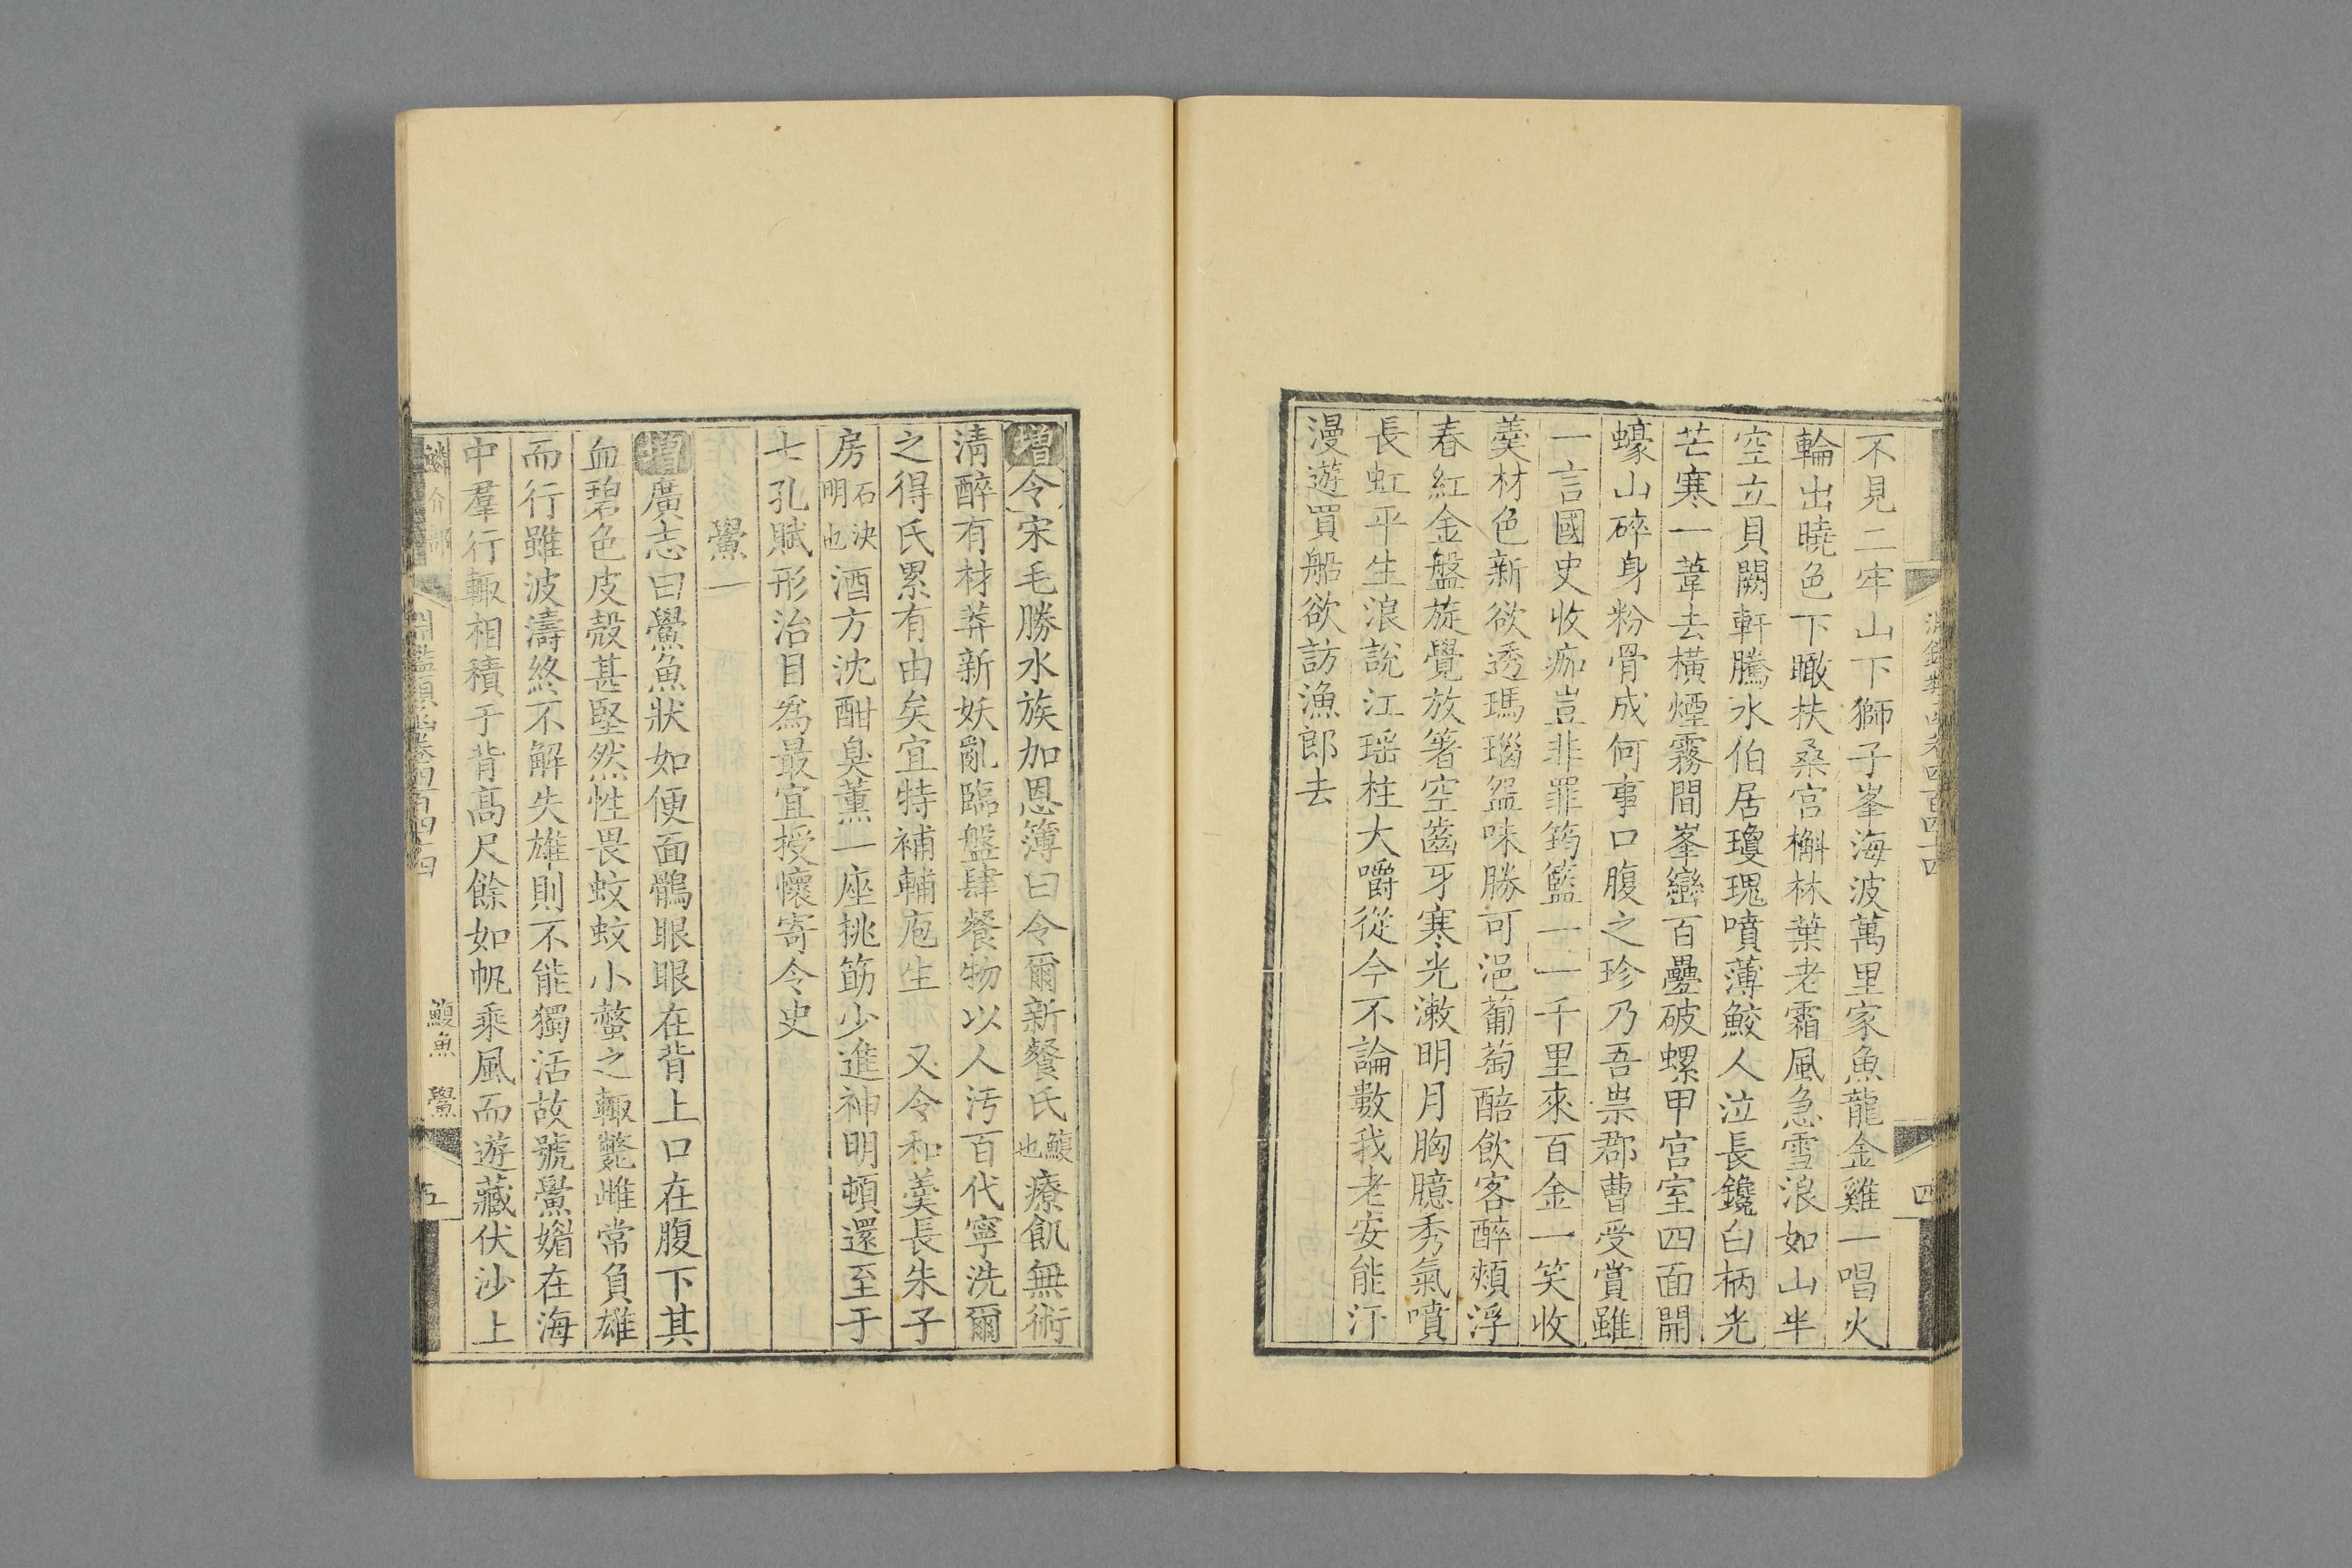 不見二牢山下獅子峯海波萬里家魚龍金雞一唱火
輪出曉色下瞰扶桑宮槲林葉老霜風急雪浪如山半
空立貝闕軒騰水伯居瓊瑰噴薄鮫人泣長鑱白柄光
芒寒一葦去橫煙霧間峯巒百疊破螺甲宮室四面開
蠔山碎身粉骨成何事口腹之珍乃吾祟郡曹受賞雖
一言國史收痂豈非罪筠籃一一千里來百金一笑收
羹材色新欲透瑪瑙盌味勝可浥葡萄醅飲客醉頰浮
春紅金盤旋覺放箸空齒牙寒光漱明月胸臆秀氣噴
長虹平生浪說江瑶柱大嚼從今不論數我老安能汗
漫遊買船欲訪漁郎去
四
增令宋毛勝水族加恩簿曰令爾新餐氏鰒也療飢無術
清醉有材莽新妖亂臨盤肆餐物以人汚百代寧洗爾
之得氏累有由矣宜特補輔庖生 又令和羹長朱子
房石決明也酒方沈酣臭薰一座挑筯少進神明頓還至于
七孔賦形治目爲最宜授懷寄令史
鱟一
增廣志曰鱟魚狀如便面鶻眼眼在背上口在腹下其
血碧色皮殼甚堅然性畏蚊蚊小螫之輒斃雌常負雄
而行雖波濤終不解失雄則不能獨活故號鱟媚在海
中羣行輒相積于背高尺餘如帆乘風而遊藏伏沙上
淵鑑類函卷四百四十四
鰒魚 鱟
五